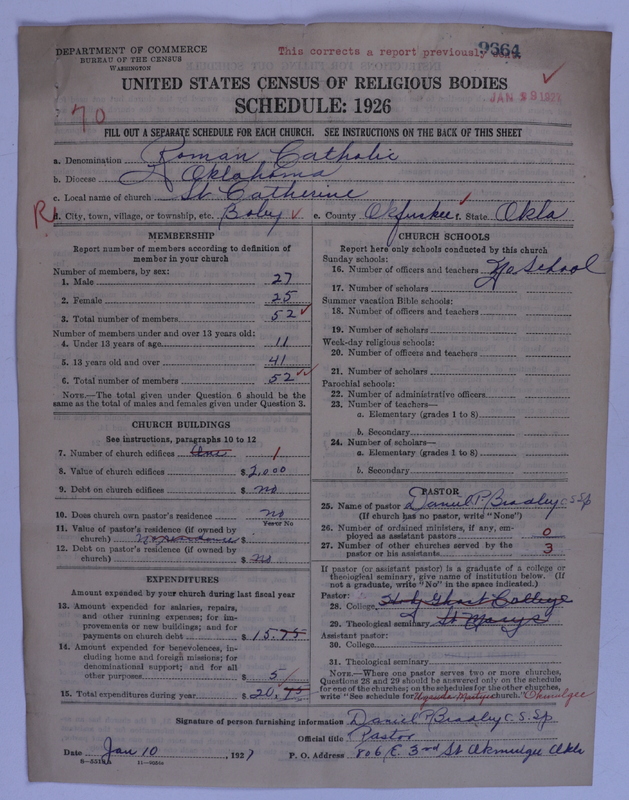 DEPARTMENT OF COMMERCE
BUREAU OF THE CENSUS
WASHINGTON
This corrects a report previously
9664
UNITED STATES CENSUS OF RELIGIOUS BODIES
SCHEDULE: 1926
70
FILL OUT A SEPARATE SCHEDULE FOR EACH CHURCH. SEE INSTRUCTIONS ON THE BACK OF THIS SHEET
a. Denomination Roman Catholic
b. Diocese Oklahoma
c. Local name of church St Catherine
d. City, town, village, or township, etc. Boley e. County Okfuskee f. State Okla
MEMBERSHIP
Report number of members according to definition of
member in your church
Number of members, by sex:
1. Male 27
2. Female 25
3. Total number of members 52
Number of members under and over 13 years old:
4. Under 13 years of age 11
5. 13 years old and over 41
6. Total number of members 52
NOTE.—The total given under Question 6 should be the
same as the total of males and females given under Question 3.
CHURCH BUILDINGS
See instructions, paragraphs 10 to 12
7. Number of church edifices One 1
8. Value of church edifices $ 2,000
9. Debt on church edifices $ no
10. Does church own pastor's residence no
Yes or No
11. Value of pastor's residence (if owned by
church) No residence $
12. Debt on pastor's residence (if owned by
church) $ no
EXPENDITURES
Amount expended by your church during last fiscal year
13. Amount expended for salaries, repairs,
and other running expenses; for im-
provements or new buildings; and for
payments on church debt $ 15.75
14. Amount expended for benevolences, in-
cluding home and foreign missions; for
denominational support; and for all
other purposes $ 5
15. Total expenditures during year $ 20.75
CHURCH SCHOOLS
Report here only schools conducted by this church
Sunday schools:
16. Number of officers and teachers No School
17. Number of scholars
Summer vacation Bible schools:
18. Number of officers and teachers
19. Number of scholars
Week-day religious schools:
20. Number of officers and teachers
21. Number of scholars
Parochial schools:
22. Number of administrative officers
23. Number of teachers—
a. Elementary (grades 1 to 8)
b. Secondary
24. Number of scholars—
a. Elementary (grades 1 to 8)
b. Secondary
PASTOR
25. Name of pastor Daniel P. Bradley C.S.Sp
(If church has no pastor, write "None")
26. Number of ordained ministers, if any, em-
ployed as assistant pastors 0
27. Number of other churches served by the
pastor or his assistants 3
If pastor (or assistant pastor) is a graduate of a college or
theological seminary, give name of institution below. (If
not a graduate, write "No" in the space indicated.)
Pastor:
28. College Holy Ghost College
29. Theological seminary St Marys
Assistant pastor:
30. College
31. Theological seminary
NOTE.—Where one pastor serves two or more churches,
Questions 28 and 29 should be answered only on the schedule
for one of the churches; on the schedules for the other churches,
write "See schedule for Uganda Martyrs church." Okmulgee
Signature of person furnishing information Daniel P. Bradley C.S.Sp
Official title Pastor
Date Jan 10, 1927 P. O. Address 806 E. 3rd St Okmulgee Okla